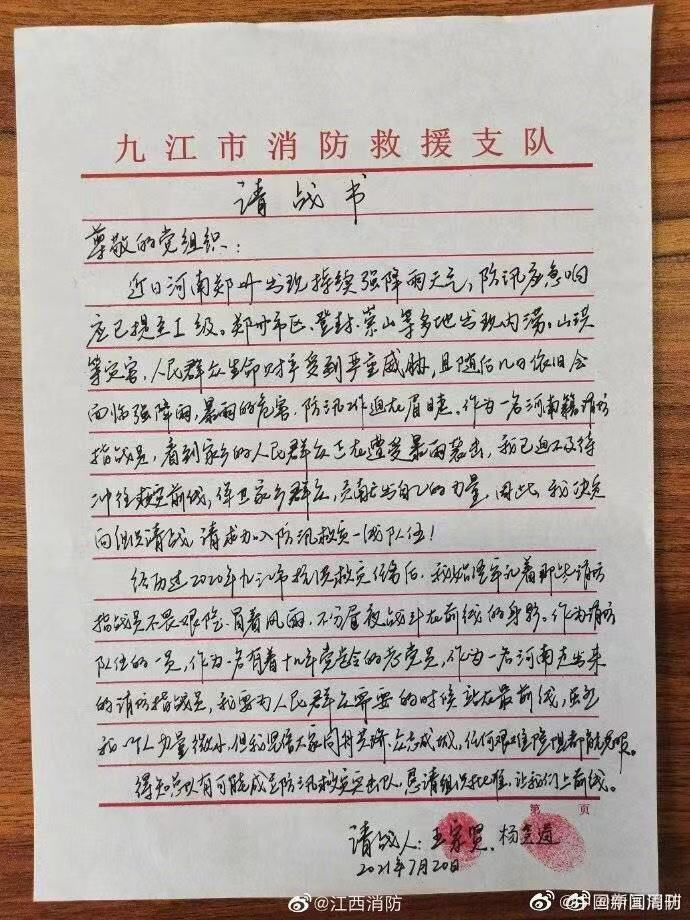 九江市消防救援支队
请战书
尊敬的党组织：
近日河南郑州出现持续强降雨天气，防汛应急响
应已提至I级。郑州市区、登封、嵩山等多地出现内涝。山洪
等灾害，人民群众生命财产受到严重威胁，且随后几日依旧会
面临强降雨，暴雨的危害，防汛工作迫在眉睫。作为一名河南籍消防
指战员，看到家乡的人民群众正在遭受暴雨袭击，我已迫不及待
冲往救灾前线，保卫家乡群众，贡献出自己的力量，因此，我决定
向组织请战，请求加入防汛救灾一线队伍！
经历过2020年九江市抗洪救灾任务后，我始终牢记着那些消防
指战员不畏艰险、冒着风雨，不分昼夜战斗在前线的身影。作为消防
队伍的一员，作为一名有着十九年党龄的老党员，作为一名河南走出来
的消防指战员，我要为人民群众需要的时候站在最前线，虽然
我个人力量微小，但我坚信大家同舟共济、众志成城，任何艰难险阻都能克服。
得知总队有可能成立防汛救灾突击队，恳请组织批准，让我们上前线。
第 页
请战人：王家贤、杨
2021年7月20日
@江西消防
国新闻周刊